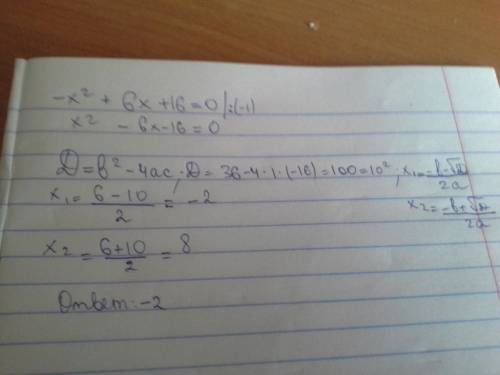 -x² + 6x + 16 = 0 /:(-1)
x² - 6x - 16 = 0
D = b² - 4ac; D = 36 - 4·1·(-16) = 100 = 10²; x₁ = (-b - √D)/2a
x₁ = (6 - 10)/2 = -2
x₂ = (-b + √D)/2a
x₂ = (6 + 10)/2 = 8
Ответ: -2